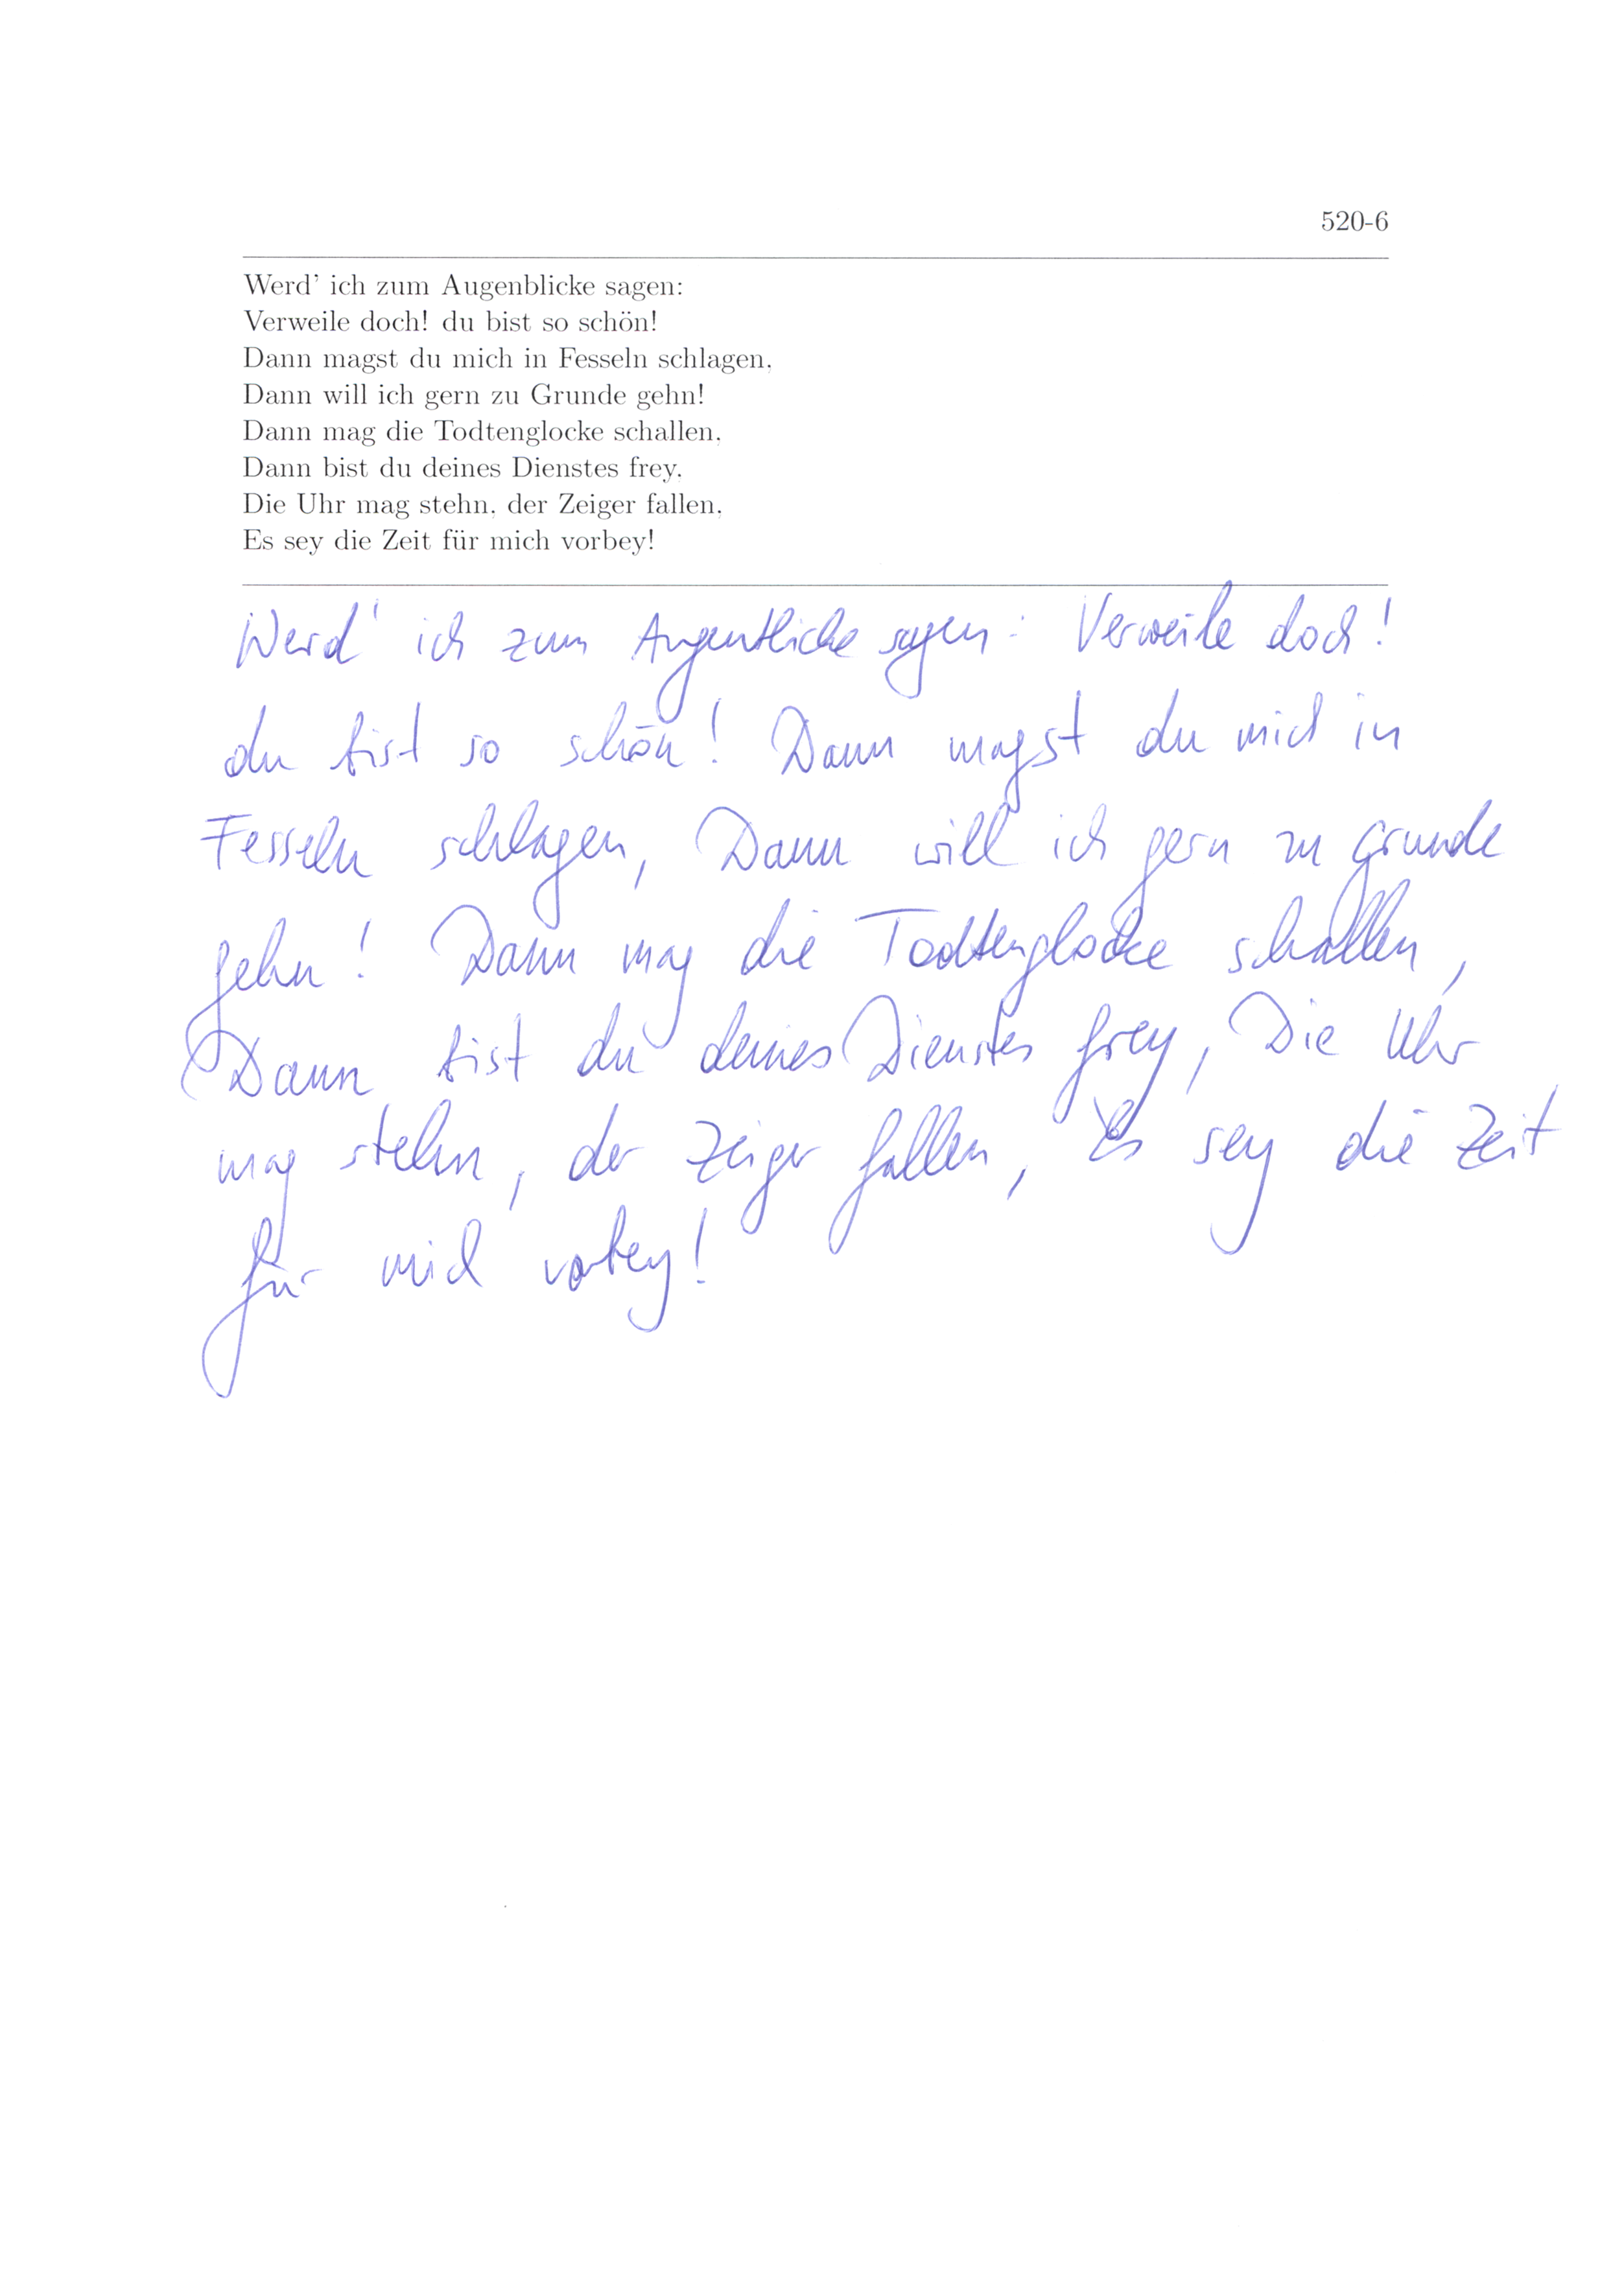 520-6
Werd' ich zum Augenblicke sagen:
Verweile doch! du bist so schön!
Dann magst du mich in Fesseln schlagen,
Dann will ich gern zu Grunde gehn!
Dann mag die Todtenglocke schallen,
Dann bist du deines Dienstes frey,
Die Uhr mag stehn, der Zeiger fallen,
Es sey die Zeit für mich vorbey!
Werd' ich zum Augenblicke sagen: Verweile doch!
du bist so schön! Dann magst du mich in
Fesseln schlagen, Dann will ich gern zu Grunde
gehn! Dann mag die Todtenglocke schallen,
Dann bist du deines Dienstes frey, Die Uhr
mag stehn, der Zeiger fallen, Es sey die Zeit
für mich vorbey!